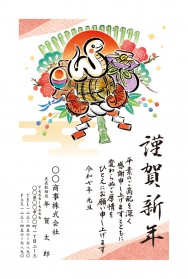 謹賀新年
平素のご高配を深く
感謝申し上げますとともに
変わらぬご厚情を
ひとえにお願い申し上げます
令和七年 元旦
〇〇商事株式会社
代表取締役 年賀 太郎